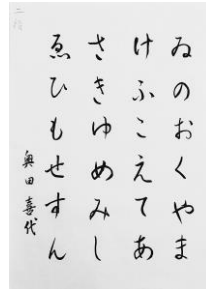 ゐのおくやま
けふこえてあ
さきゆめみし
ゑひもせすん
奥田喜代